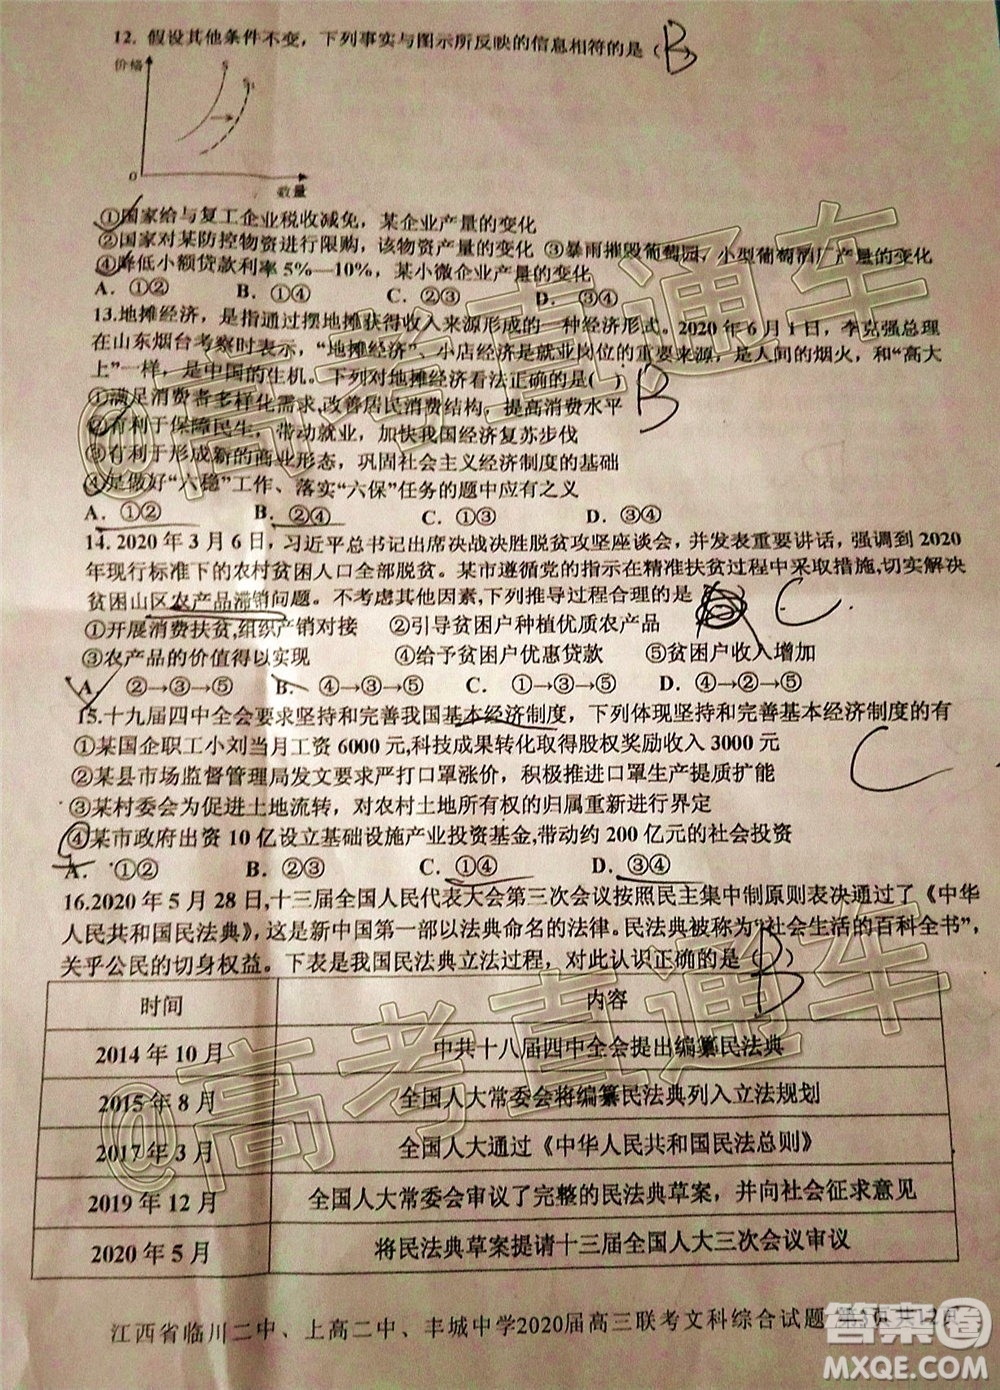 12. 假设其他条件不变，下列事实与图示所反映的信息相符的是（B）
价格
S
S₁
O
数量
①国家给与复工企业税收减免，某企业产量的变化
②国家对某防控物资进行限购，该物资产量的变化 ③暴雨摧毁葡萄园，小型葡萄酒厂产量的变化
④降低小额贷款利率5%—10%，某小微企业产量的变化
A. ①② B. ①④ C. ②③ D. ③④
13.地摊经济，是指通过摆地摊获得收入来源形成的一种经济形式。2020年6月1日，李克强总理
在山东烟台考察时表示，“地摊经济”、小店经济是就业岗位的重要来源，是人间的烟火，和“高大
上”一样，是中国的生机。下列对地摊经济看法正确的是( ) B
①满足消费者多样化需求,改善居民消费结构，提高消费水平
②有利于保障民生，带动就业，加快我国经济复苏步伐
③有利于形成新的商业形态，巩固社会主义经济制度的基础
④是做好“六稳”工作、落实“六保”任务的题中应有之义
A. ①② B. ②④ C. ①③ D. ③④
14.2020年3月6日，习近平总书记出席决战决胜脱贫攻坚座谈会，并发表重要讲话，强调到2020
年现行标准下的农村贫困人口全部脱贫。某市遵循党的指示在精准扶贫过程中采取措施,切实解决
贫困山区农产品滞销问题。不考虑其他因素,下列推导过程合理的是 C
①开展消费扶贫,组织产销对接 ②引导贫困户种植优质农产品
③农产品的价值得以实现 ④给予贫困户优惠贷款 ⑤贫困户收入增加
A. ②→③→⑤ B. ④→③→⑤ C. ①→③→⑤ D. ④→②→⑤
15.十九届四中全会要求坚持和完善我国基本经济制度，下列体现坚持和完善基本经济制度的有
C
①某国企职工小刘当月工资6000元,科技成果转化取得股权奖励收入3000元
②某县市场监督管理局发文要求严打口罩涨价，积极推进口罩生产提质扩能
③某村委会为促进土地流转，对农村土地所有权的归属重新进行界定
④某市政府出资10亿设立基础设施产业投资基金,带动约200亿元的社会投资
A. ①② B. ②③ C. ①④ D. ③④
16.2020年5月28日,十三届全国人民代表大会第三次会议按照民主集中制原则表决通过了《中华
人民共和国民法典》,这是新中国第一部以法典命名的法律。民法典被称为“社会生活的百科全书”，
关乎公民的切身权益。下表是我国民法典立法过程，对此认识正确的是（B）
时间 内容
2014年10月 中共十八届四中全会提出编纂民法典
2015年8月 全国人大常委会将编纂民法典列入立法规划
2017年3月 全国人大通过《中华人民共和国民法总则》
2019年12月 全国人大常委会审议了完整的民法典草案，并向社会征求意见
2020年5月 将民法典草案提请十三届全国人大三次会议审议
江西省临川二中、上高二中、丰城中学2020届高三联考文科综合试题 第3页共12页
@高考直通车
@高考直通车
答案圈
MXQE.COM